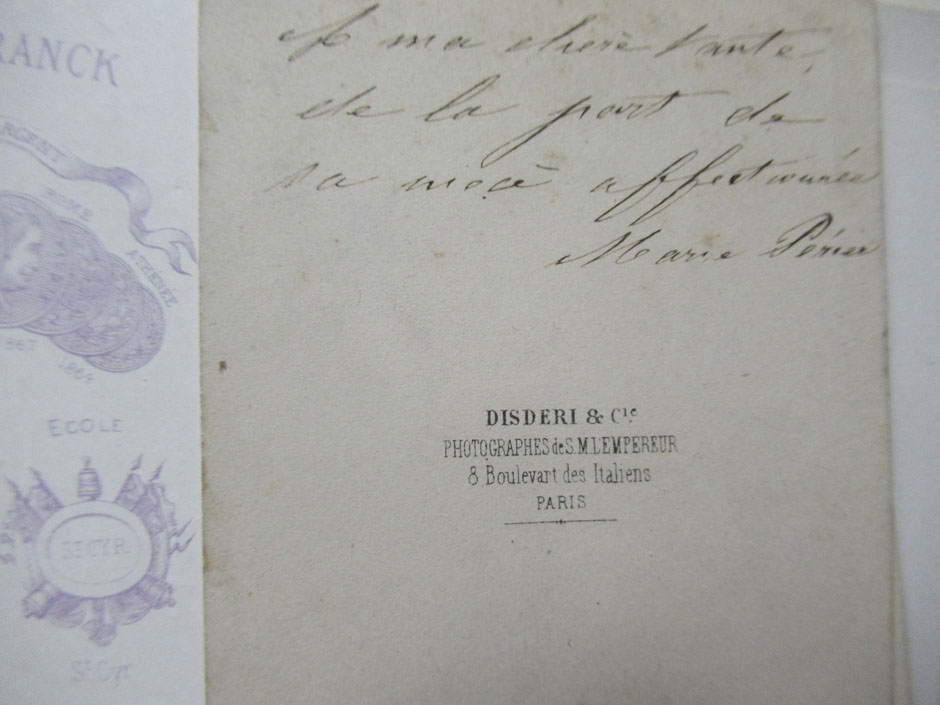 RANCK
ARGENT
ROME
ATHÉNÉE
1862
1864
ECOLE
ST CYR
St Cyr
A ma chère tante,
de la part de
sa nièce affectionnée
Marie Périer
DISDERI & Cie
PHOTOGRAPHES de S.M. L'EMPEREUR
8, Boulevart des Italiens
PARIS